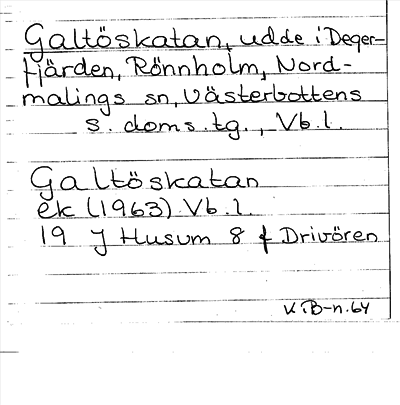 Galtöskatan, udde i Deger-
fjärden, Rönnholm, Nord-
malings sn, Västerbottens
s. doms.tg., Vb.l.
Galtöskatan
ek (1963) Vb.l.
19 J Husum 8 f Drivören
KiB-n.64